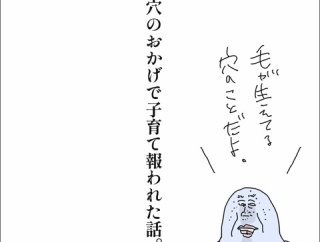 穴のおかげで子育て報われた話。
毛が生えてる
穴のことだよ。